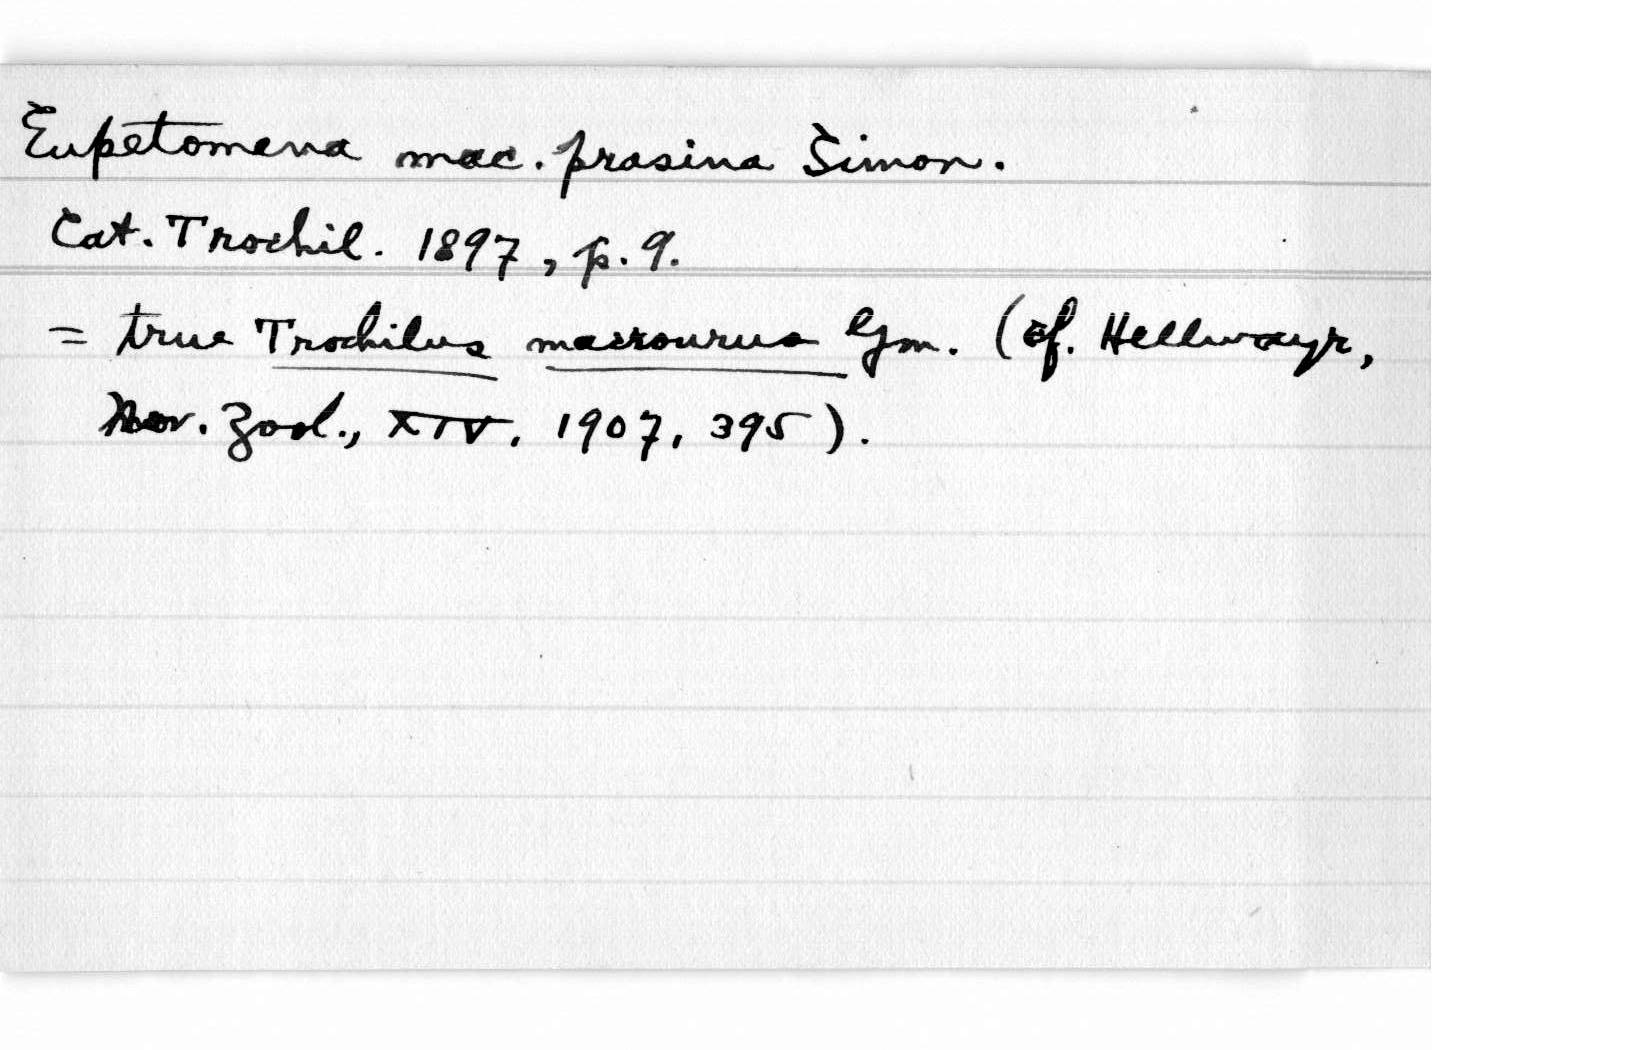 Eupetomena mac. prasina Simon.
Cat. Trochil. 1897, p. 9.
= true Trochilus macrourus Gm. (cf. Hellmayr,
Nov. Zool., XIV, 1907, 395).